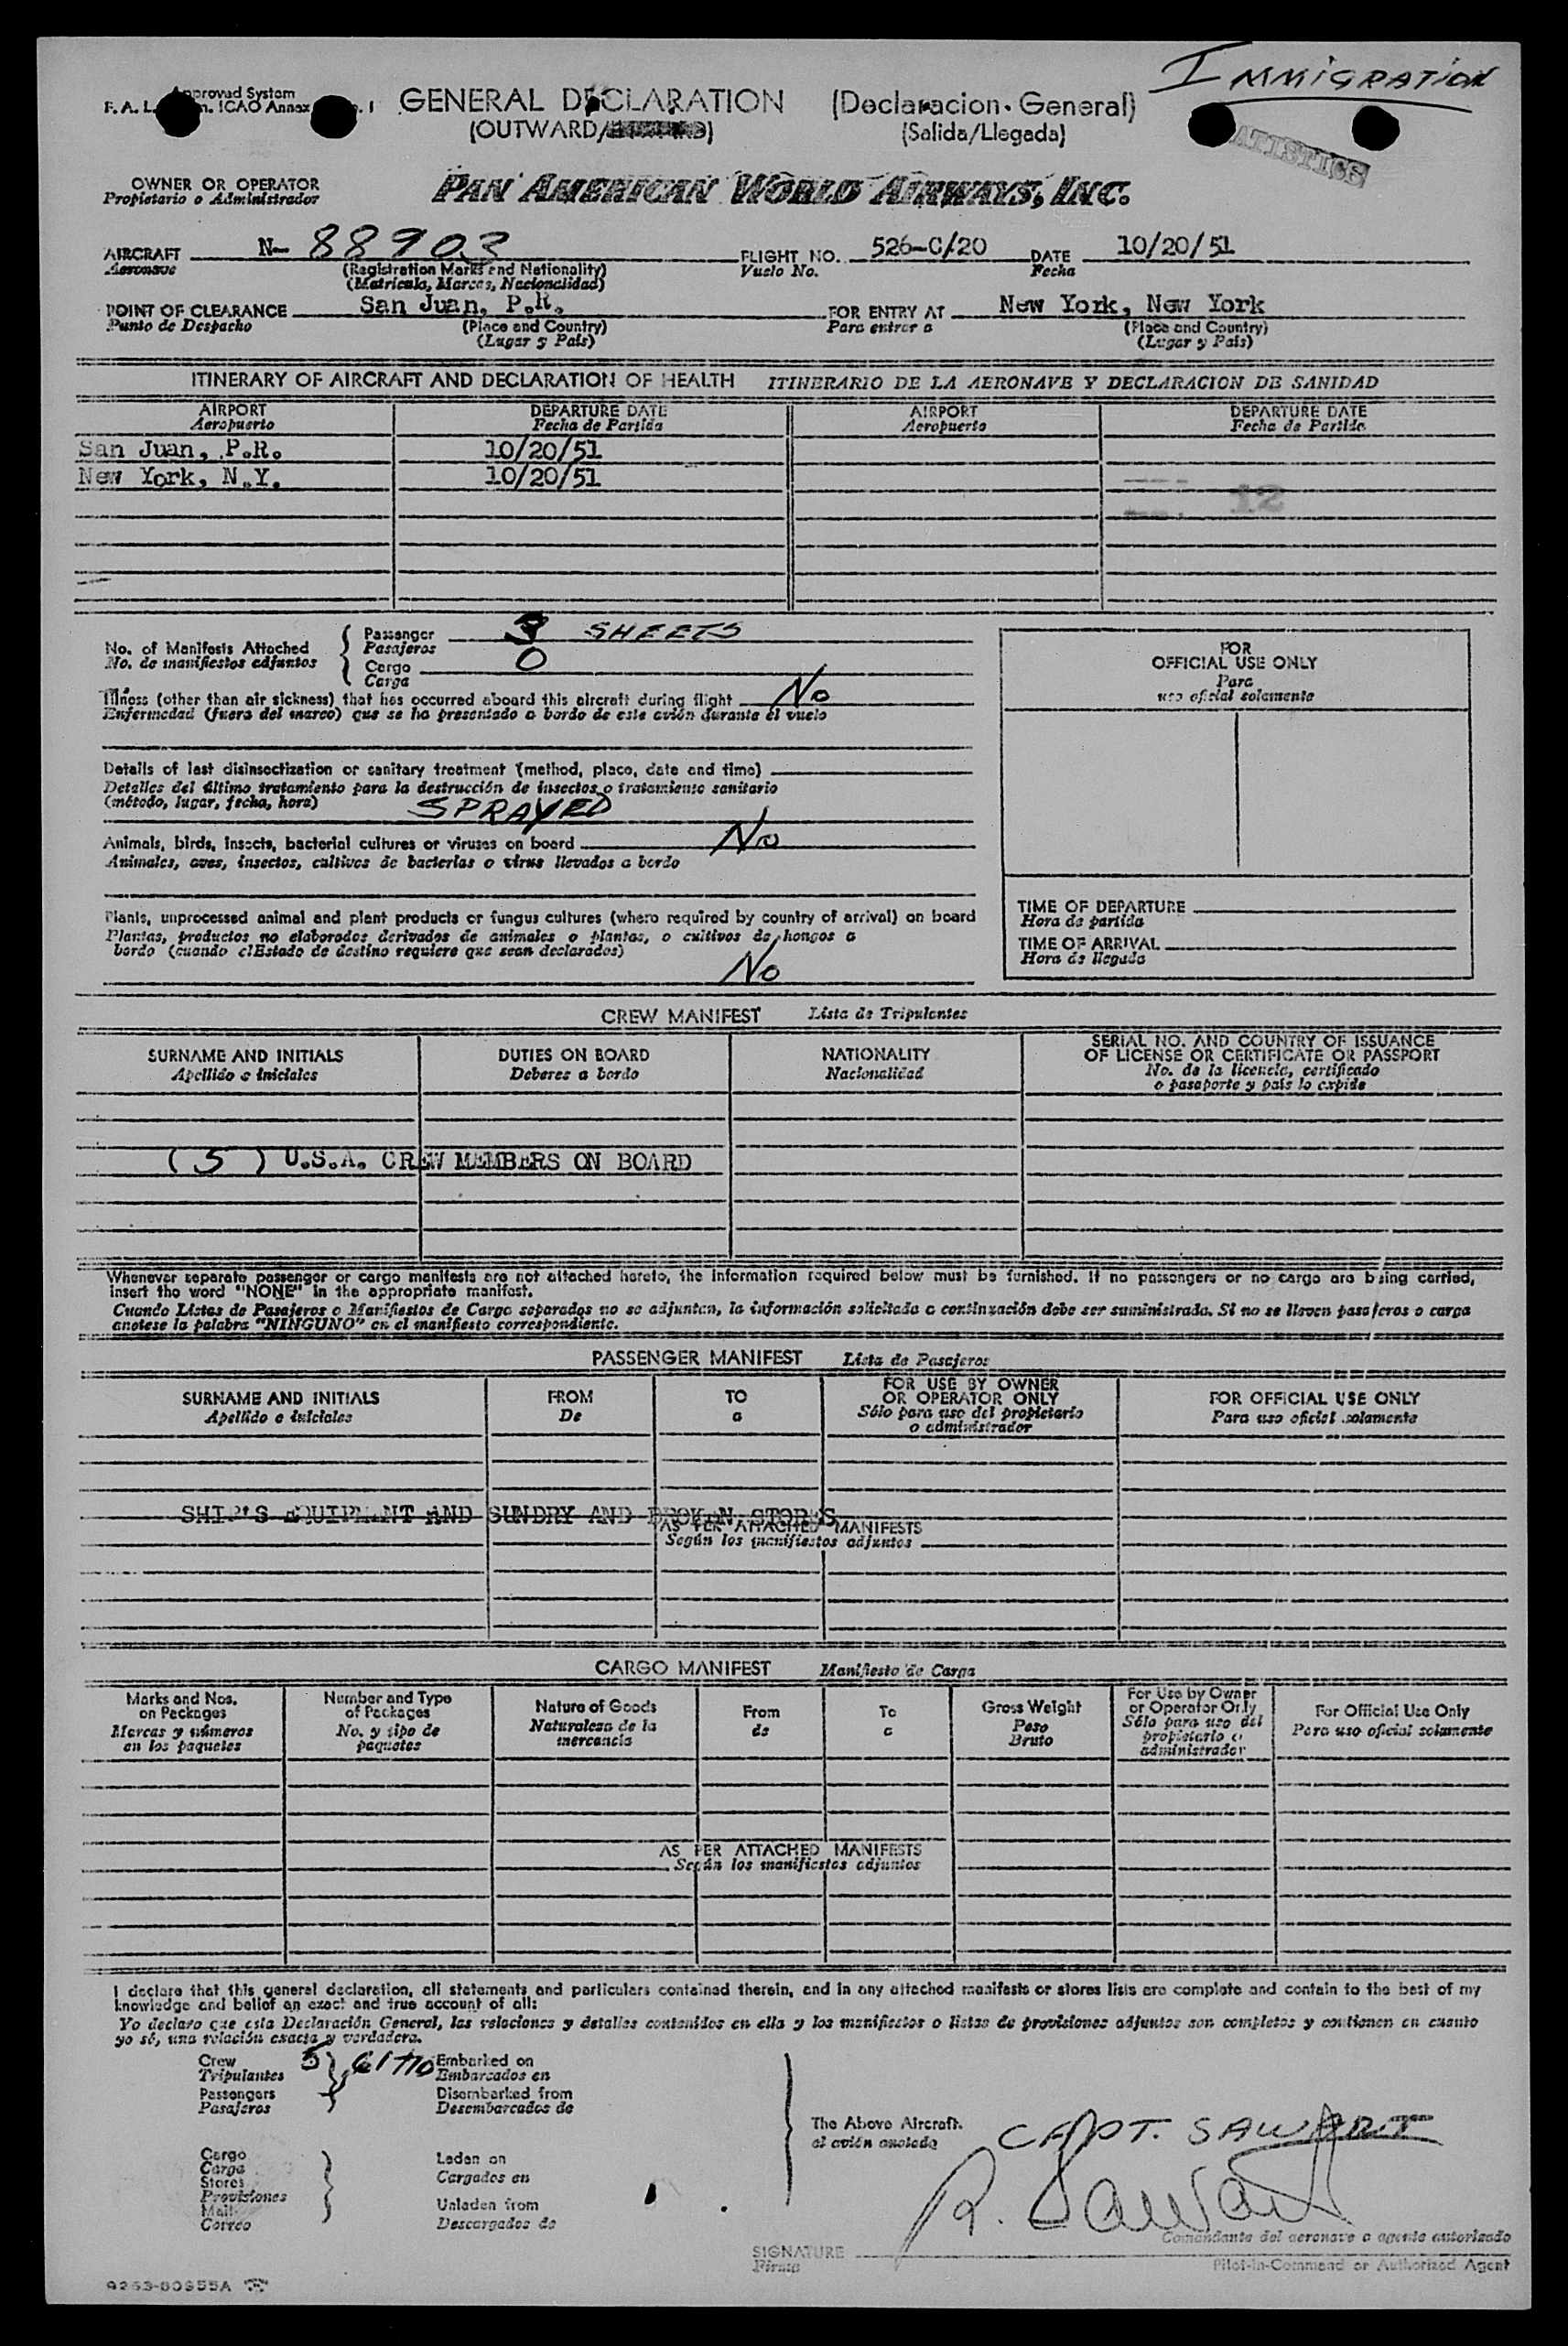 IMMIGRATION
Approved System
F. A. L. ICAO Annex
GENERAL DECLARATION (Declaracion General)
(OUTWARD/ (Salida/Llegada)
ATISTICS
OWNER OR OPERATOR
Propietario o Administrador
PAN AMERICAN WORLD AIRWAYS, INC.
AIRCRAFT N- 88903 FLIGHT NO. 526-C/20 DATE 10/20/51
Aeronave (Registration Marks and Nationality) Vuelo No. Fecha
(Matricula, Marcas, Nacionalidad)
POINT OF CLEARANCE San Juan, P.R. FOR ENTRY AT New York, New York
Punto de Despacho (Place and Country) Para entrar a (Place and Country)
(Lugar y País) (Lugar y País)
ITINERARY OF AIRCRAFT AND DECLARATION OF HEALTH ITINERARIO DE LA AERONAVE Y DECLARACION DE SANIDAD
AIRPORT DEPARTURE DATE AIRPORT DEPARTURE DATE
Aeropuerto Fecha de Partida Aeropuerto Fecha de Partida
San Juan, P.R. 10/20/51
New York, N.Y. 10/20/51
12
No. of Manifests Attached Passenger 3 SHEETS
No. de manifiestos adjuntos Pasajeros
Cargo 0
Carga
Illness (other than air sickness) that has occurred aboard this aircraft during flight No
Enfermedad (fuera del mareo) que se ha presentado a bordo de este avión durante el vuelo
Details of last disinsectization or sanitary treatment (method, place, date and time)
Detalles del último tratamiento para la destrucción de insectos o tratamiento sanitario
(método, lugar, fecha, hora) SPRAYED
Animals, birds, insects, bacterial cultures or viruses on board No
Animales, aves, insectos, cultivos de bacterias o virus llevados a bordo
Plants, unprocessed animal and plant products or fungus cultures (where required by country of arrival) on board
Plantas, productos no elaborados derivados de animales o plantas, o cultivos de hongos a
bordo (cuando el Estado de destino requiere que sean declarados)
No
FOR
OFFICIAL USE ONLY
Para
uso oficial solamente
TIME OF DEPARTURE
Hora de partida
TIME OF ARRIVAL
Hora de llegada
CREW MANIFEST Lista de Tripulantes
SURNAME AND INITIALS DUTIES ON BOARD NATIONALITY SERIAL NO. AND COUNTRY OF ISSUANCE
OF LICENSE OR CERTIFICATE OR PASSPORT
Apellido e iniciales Deberes a bordo Nacionalidad No. de la licencia, certificado
o pasaporte y país lo expide
( 5 ) U.S.A. CREW MEMBERS ON BOARD
Whenever separate passenger or cargo manifests are not attached hereto, the information required below must be furnished. If no passengers or no cargo are being carried,
insert the word "NONE" in the appropriate manifest.
Cuando Listas de Pasajeros o Manifiestos de Carga separados no se adjuntan, la información solicitada a continuación debe ser suministrada. Si no se lleven pasajeros o carga
anotese la palabra "NINGUNO" en el manifiesto correspondiente.
PASSENGER MANIFEST Lista de Pasajeros
SURNAME AND INITIALS FROM TO FOR USE BY OWNER FOR OFFICIAL USE ONLY
OR OPERATOR ONLY
Apellido e iniciales De a Sólo para uso del propietario Para uso oficial solamente
o administrador
SHIP'S EQUIPMENT AND SUNDRY AND BROKEN STORES
AS PER ATTACHED MANIFESTS
Según los manifiestos adjuntos
CARGO MANIFEST Manifiesto de Carga
Marks and Nos. on Packages Number and Type of Packages Nature of Goods From To Gross Weight For Use by Owner or Operator Only For Official Use Only
Marcas y números en los paquetes No. y tipo de paquetes Naturaleza de la mercancía de a Peso Bruto Sólo para uso del propietario o administrador Para uso oficial solamente
AS PER ATTACHED MANIFESTS
Según los manifiestos adjuntos
I declare that this general declaration, all statements and particulars contained therein, and in any attached manifests or stores lists are complete and contain to the best of my
knowledge and belief an exact and true account of all:
Yo declaro que esta Declaración General, las relaciones y detalles contenidos en ella y los manifiestos o listas de provisiones adjuntos son completos y contienen en cuanto
yo sé, una relación exacta y verdadera.
Crew 5 Embarked on
Tripulantes Embarcados en
Passengers Disembarked from
Pasajeros Desembarcados de
The Above Aircraft.
el avión anotado
CAPT. SAWART
Cargo Laden on
Carga Cargados en
Stores
Provisiones Unladen from
Mail
Correo Descargados de
R. Sawart
Comandante del aeronave o agente autorizado
SIGNATURE
Firma
Pilot-in-Command or Authorized Agent